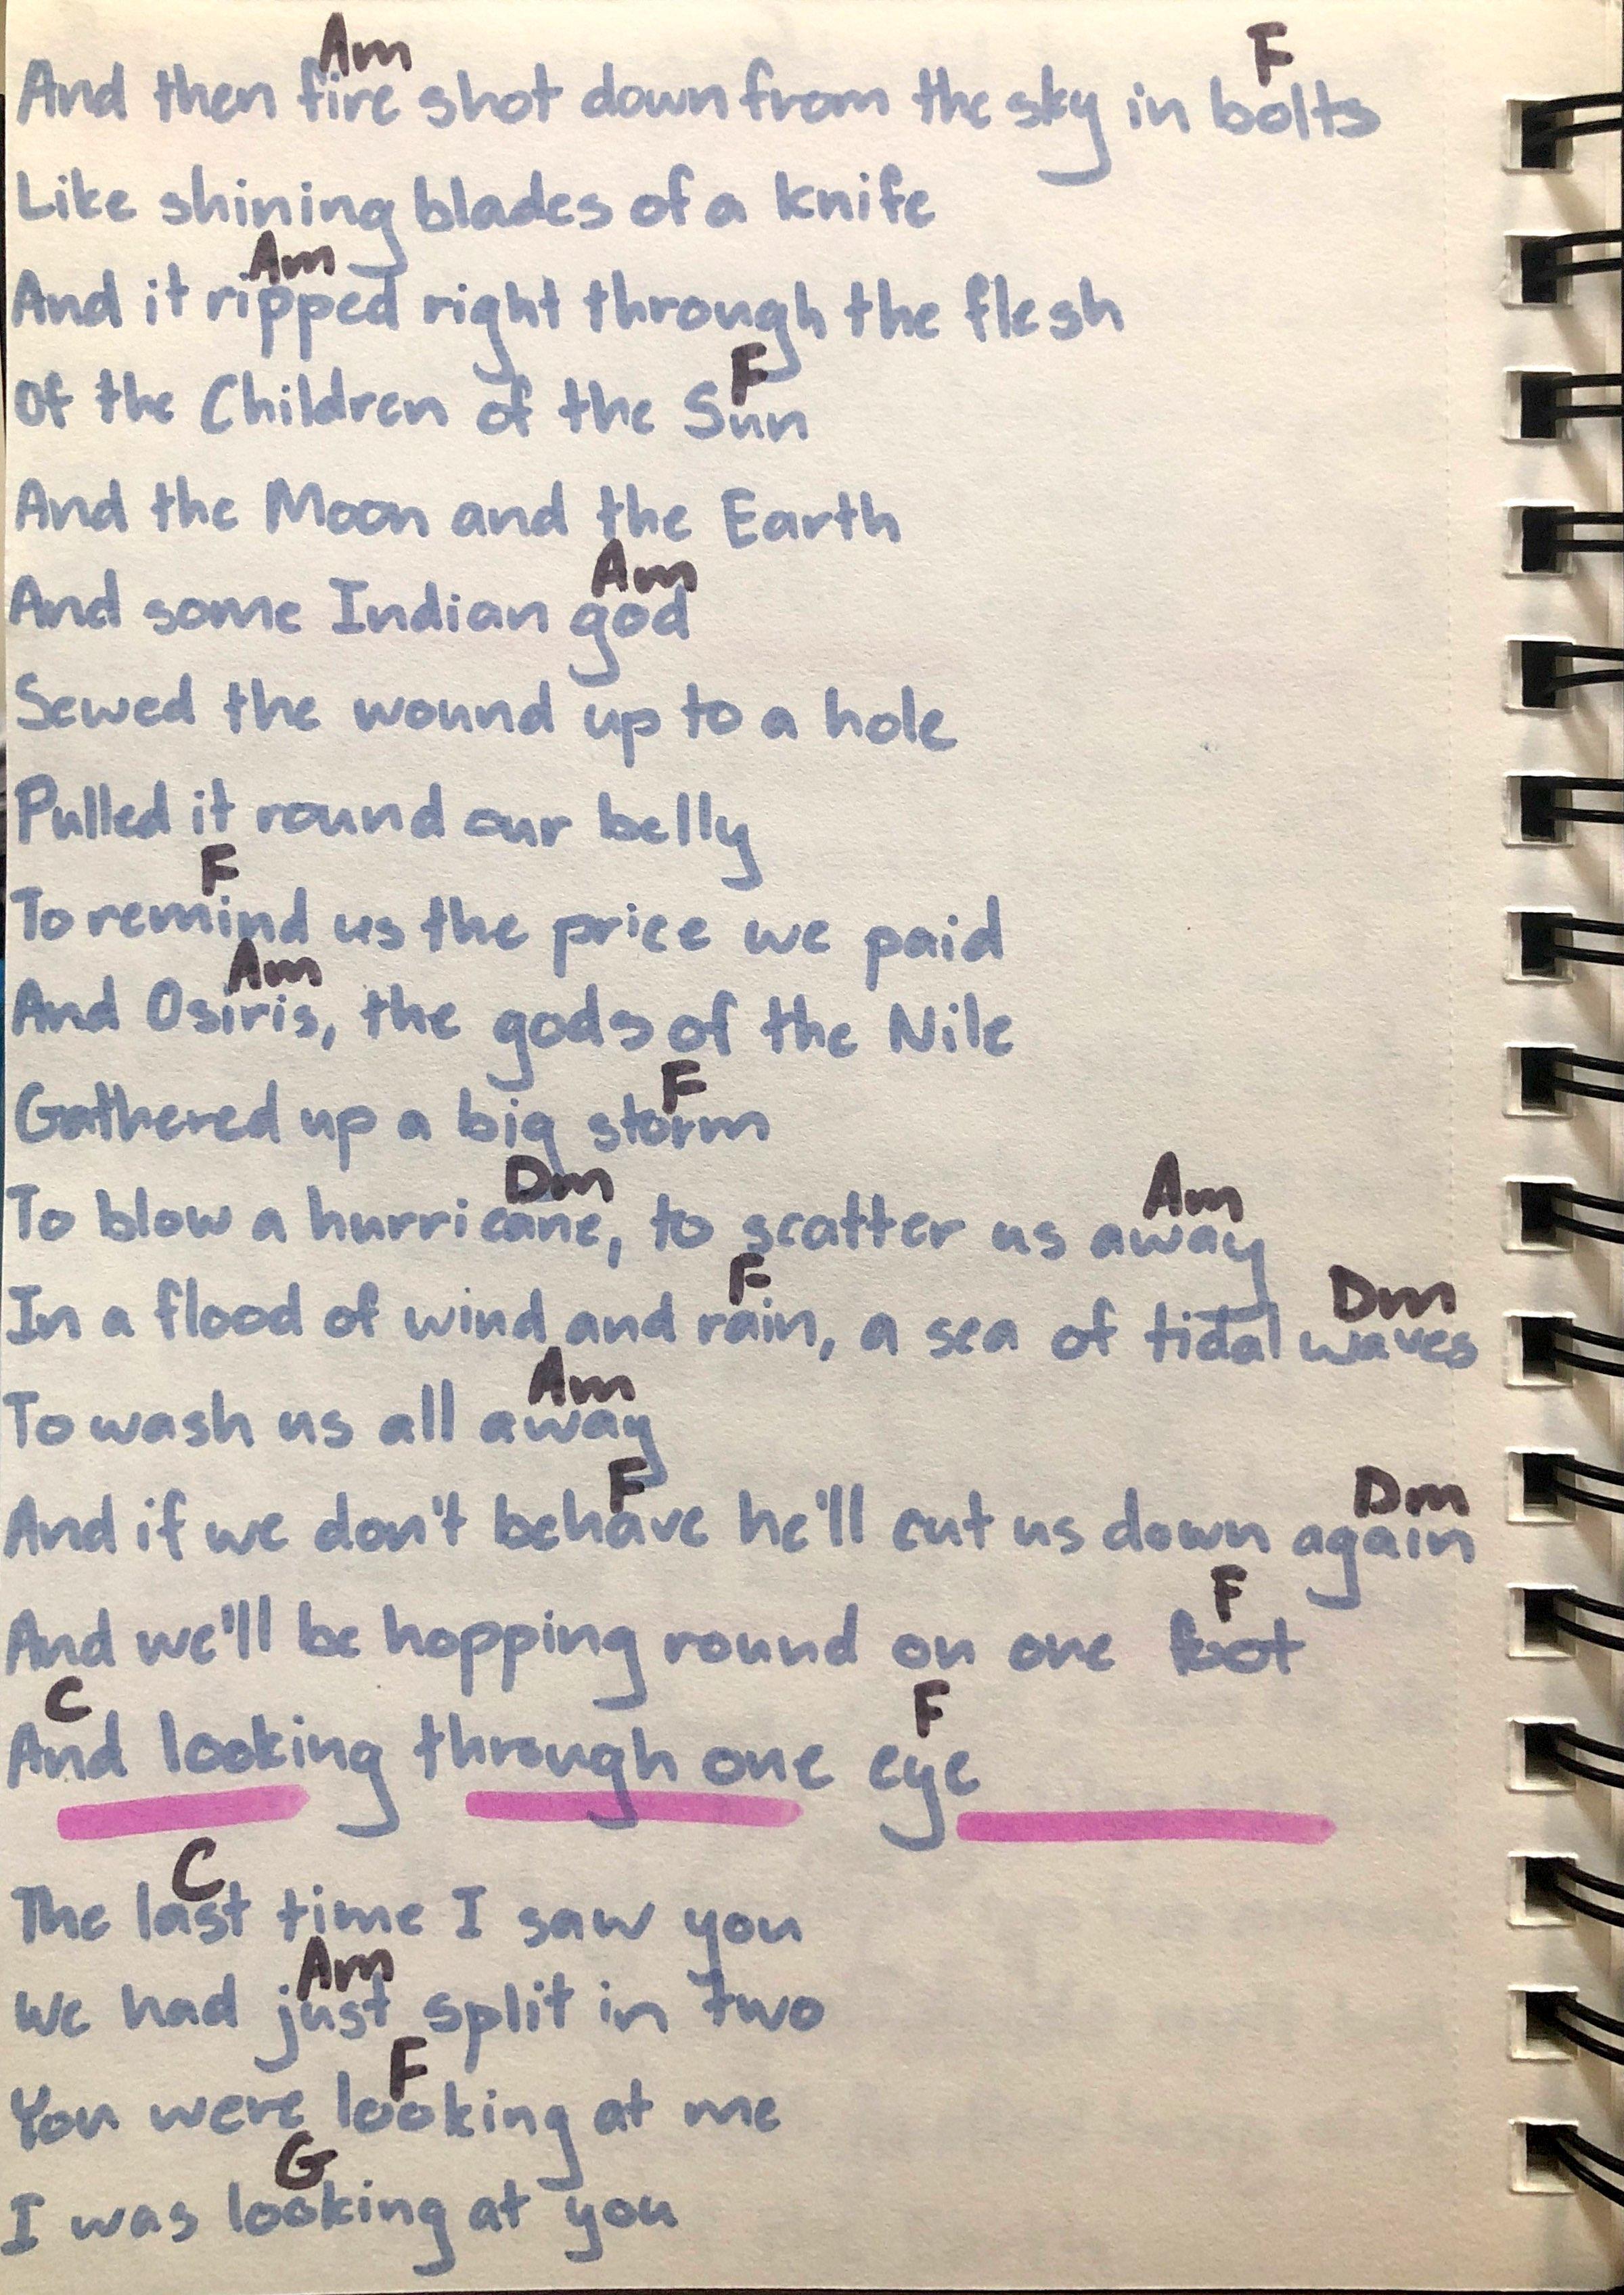 Am F
And then fire shot down from the sky in bolts
Like shining blades of a knife
Am
And it ripped right through the flesh
F
Of the Children of the Sun
And the Moon and the Earth
Am
And some Indian god
Sewed the wound up to a hole
Pulled it round our belly
F
To remind us the price we paid
Am
And Osiris, the gods of the Nile
F
Gathered up a big storm
Dm Am
To blow a hurricane, to scatter us away
F Dm
In a flood of wind and rain, a sea of tidal waves
Am
To wash us all away
F Dm
And if we don't behave he'll cut us down again
F
And we'll be hopping round on one foot
C F
And looking through one eye
C
The last time I saw you
Am
We had just split in two
F
You were looking at me
G
I was looking at you